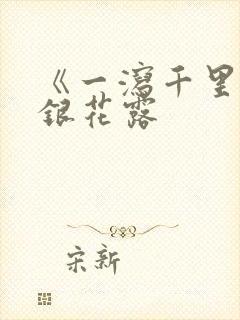 《一瀉千里
銀花露
宋新